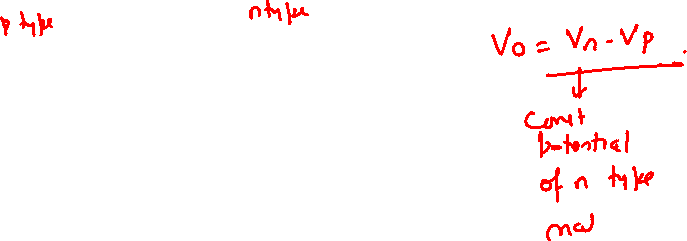 p type
n type
V0 = Vn - Vp
const
potential
of n type